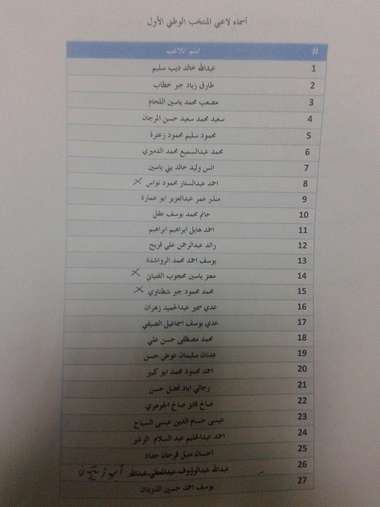 أسماء لاعبي المنتخب الوطني الأول
# اسم اللاعب
1 عبدالله خالد ديب سليم
2 طارق زياد جبر خطاب
3 مصعب محمد ياسين اللحام
4 سعيد محمد سعيد حسن المرجان
5 محمود سليم محمود زعترة
6 محمد عبدالسميع محمد الدميري
7 انس وليد خالد بني ياسين
8 احمد عبدالستار محمود نواس
9 منذر عمر عبدالعزيز ابو عمارة
10 حاتم محمد يوسف عقل
11 احمد هايل ابراهيم ابراهيم
12 رائد عبدالرحمن علي فريح
13 يوسف احمد محمد الرواشدة
14 معتز ياسين محجوب
15 محمد محمود جبر شطناوي
16 عدي سمير عبدالحميد زهران
17 عدي يوسف اسماعيل الصيفي
18 محمد مصطفى حسن علي
19 عدنان سليمان حسن
20 احمد محمود محمد ابو كبير
21 رجائي اياد فضل حسن
22 صالح
23 عيسى حسام الدين عيسى السباح
24 احمد عبدالحليم عبد السلام
25 احسان منيل فرحان حداد
26 عبدالله عبدالرؤوف
27 يوسف احمد حسين